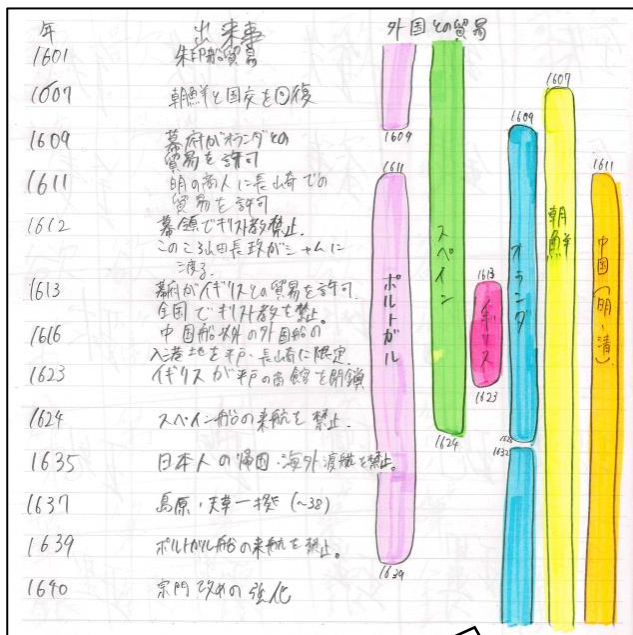 年 出来事 外国との貿易
1601 朱印船貿易
1607 朝鮮と国交を回復
1609 幕府がオランダとの
貿易を許可
1611 明の商人に長崎での
貿易を許可
1612 幕領でキリスト教禁止。
このころ山田長政がシャムに
渡る。
1613 幕府がイギリスとの貿易を許可。
全国でキリスト教を禁止。
1616 中国船以外の外国船の
入港地を平戸・長崎に限定
1623 イギリスが平戸の商館を閉鎖
1624 スペイン船の来航を禁止。
1635 日本人の帰国・海外渡航を禁止。
1637 島原・天草一揆(~38)
1639 ポルトガル船の来航を禁止。
1640 宗門改めの強化
1609
1611
ポルトガル
1639
スペイン
1624
1613
イギリス
1623
1609
オランダ
1632
1607
朝鮮
1611
中国(明・清)